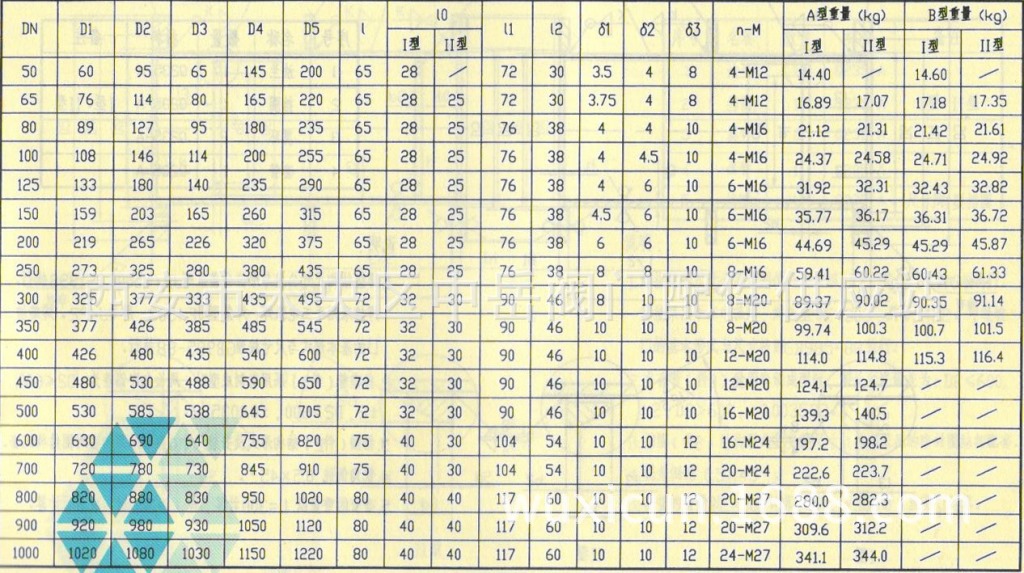 DN D1 D2 D3 D4 D5 l l0 l1 l2 δ1 δ2 δ3 n-M A型重量 (kg) B型重量 (kg)
I型 II型 I型 II型 I型 II型
50 60 95 65 145 200 65 28 / 72 30 3.5 4 8 4-M12 14.40 / 14.60 /
65 76 114 80 165 220 65 28 25 72 30 3.75 4 8 4-M12 16.89 17.07 17.18 17.35
80 89 127 95 180 235 65 28 25 76 38 4 4 10 4-M16 21.12 21.31 21.42 21.61
100 108 146 114 200 255 65 28 25 76 38 4 4.5 10 4-M16 24.37 24.58 24.71 24.92
125 133 180 140 235 290 65 28 25 76 38 4 6 10 6-M16 31.92 32.31 32.43 32.82
150 159 203 165 260 315 65 28 25 76 38 4.5 6 10 6-M16 35.77 36.17 36.31 36.72
200 219 265 226 320 375 65 28 25 76 38 6 6 10 6-M16 44.69 45.29 45.29 45.87
250 273 325 280 380 435 65 28 25 76 38 8 8 10 8-M16 59.41 60.22 60.43 61.33
西安市未央区中岳阀门配件供应站
300 325 377 333 435 495 72 32 30 90 46 8 10 10 8-M20 89.37 90.02 90.35 91.14
350 377 426 385 485 545 72 32 30 90 46 10 10 10 8-M20 99.74 100.3 100.7 101.5
400 426 480 435 540 600 72 32 30 90 46 10 10 10 12-M20 114.0 114.8 115.3 116.4
450 480 530 488 590 650 72 32 30 90 46 10 10 10 12-M20 124.1 124.7 / /
500 530 585 538 645 705 72 32 30 90 46 10 10 10 16-M20 139.3 140.5 / /
600 630 690 640 755 820 75 40 30 104 54 10 10 12 16-M24 197.2 198.2 / /
700 720 780 730 845 910 75 40 30 104 54 10 10 12 20-M24 222.6 223.7 / /
800 820 880 830 950 1020 80 40 40 117 60 10 10 12 20-M27 280.0 282.3 / /
900 920 980 930 1050 1120 80 40 40 117 60 10 10 12 20-M27 309.6 312.2 / /
1000 1020 1080 1030 1150 1220 80 40 40 117 60 10 10 12 24-M27 341.1 344.0 / /